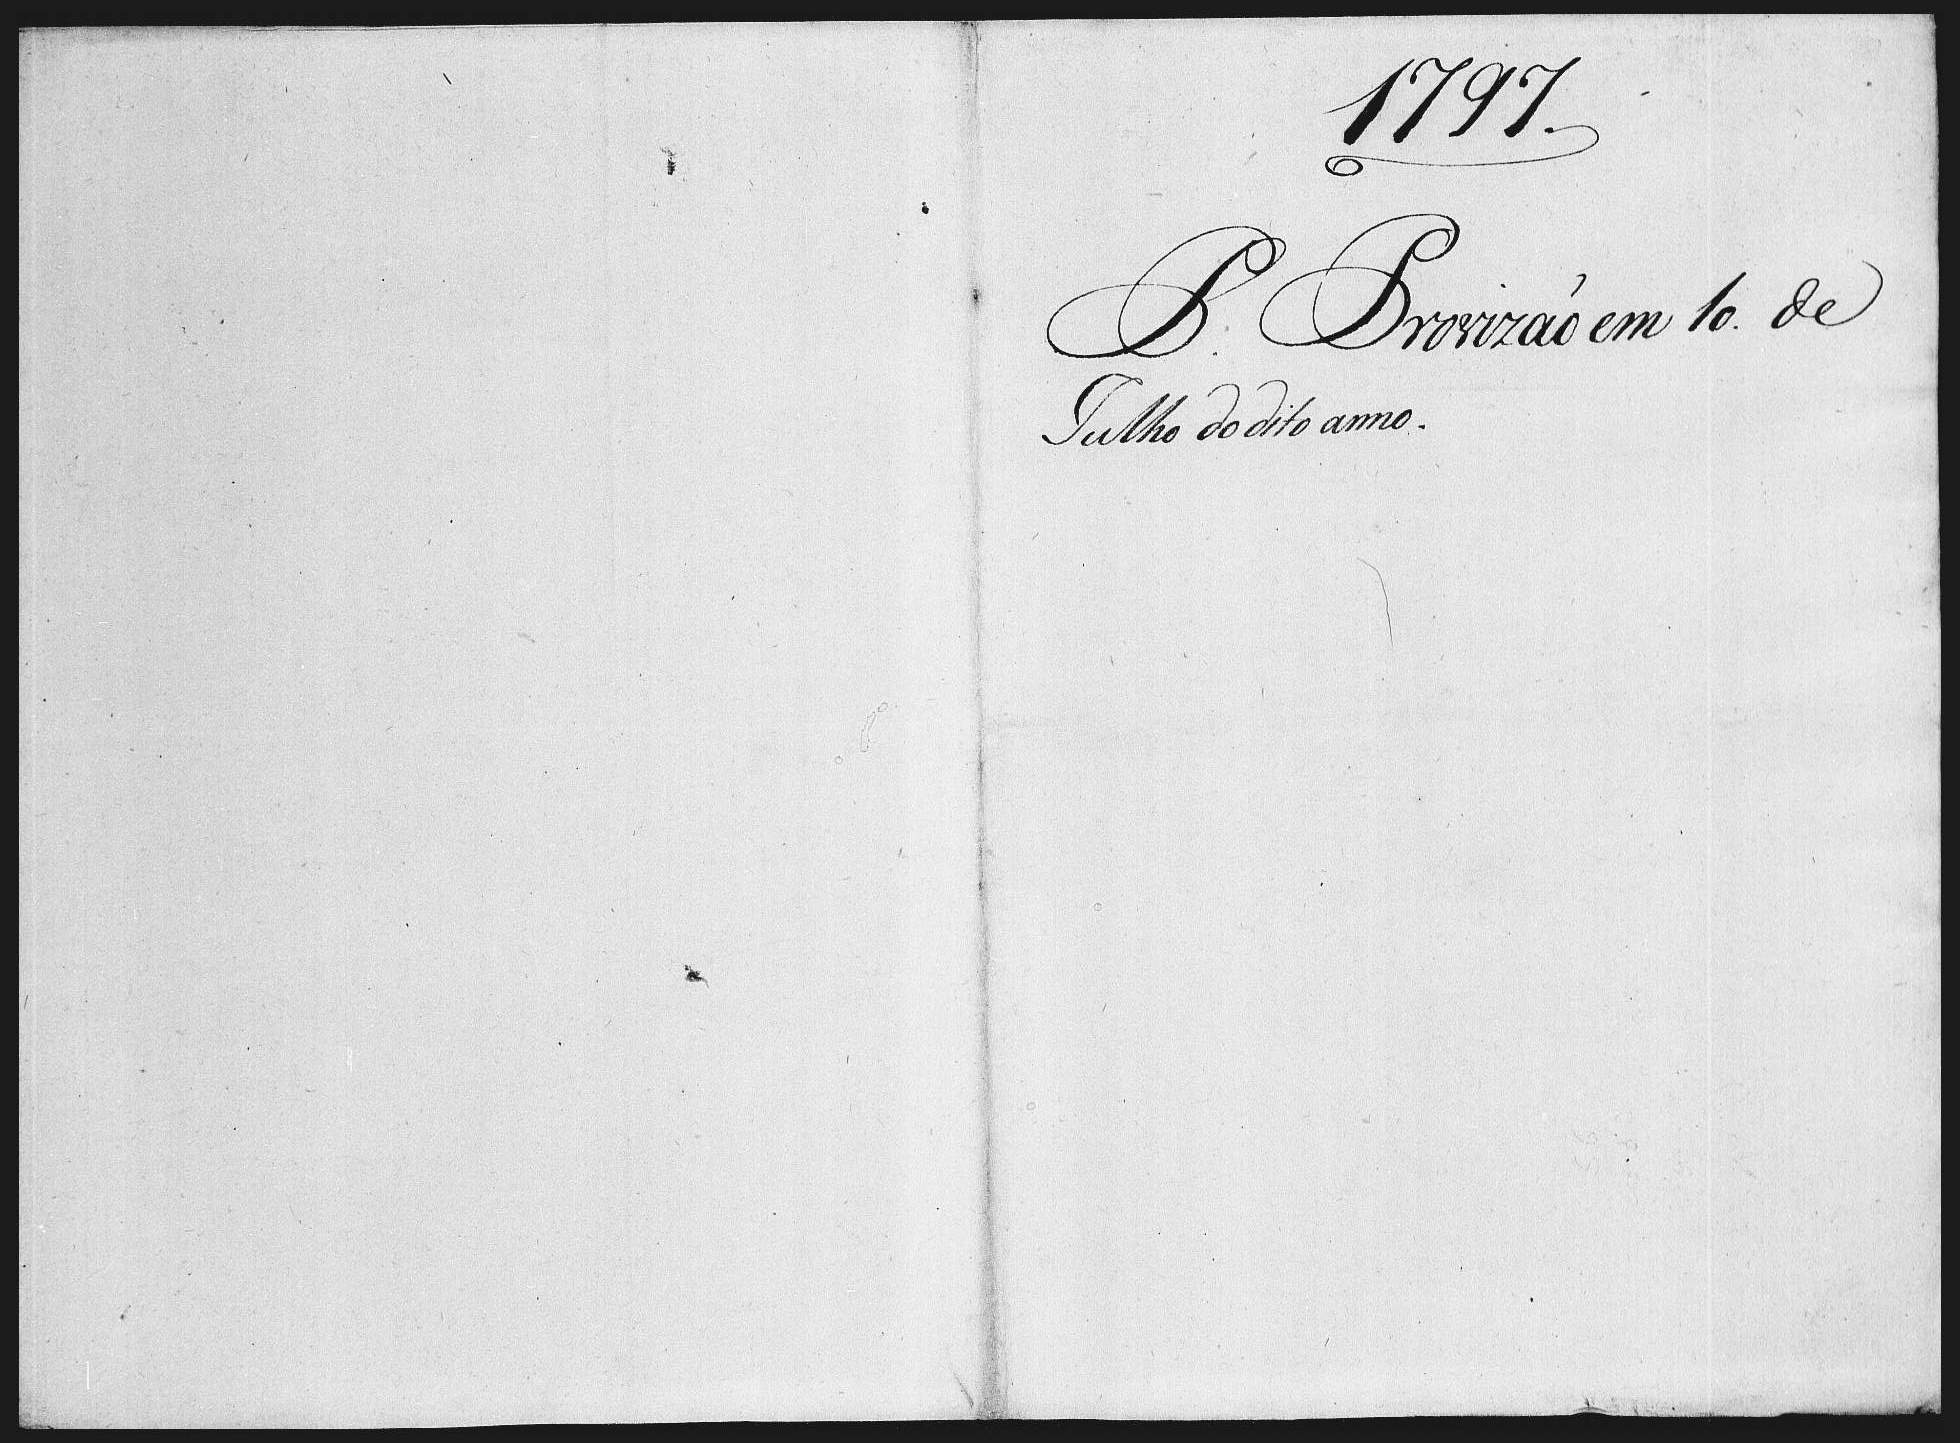 1797.
P. Provizaõ em 10. de
Julho do dito anno.